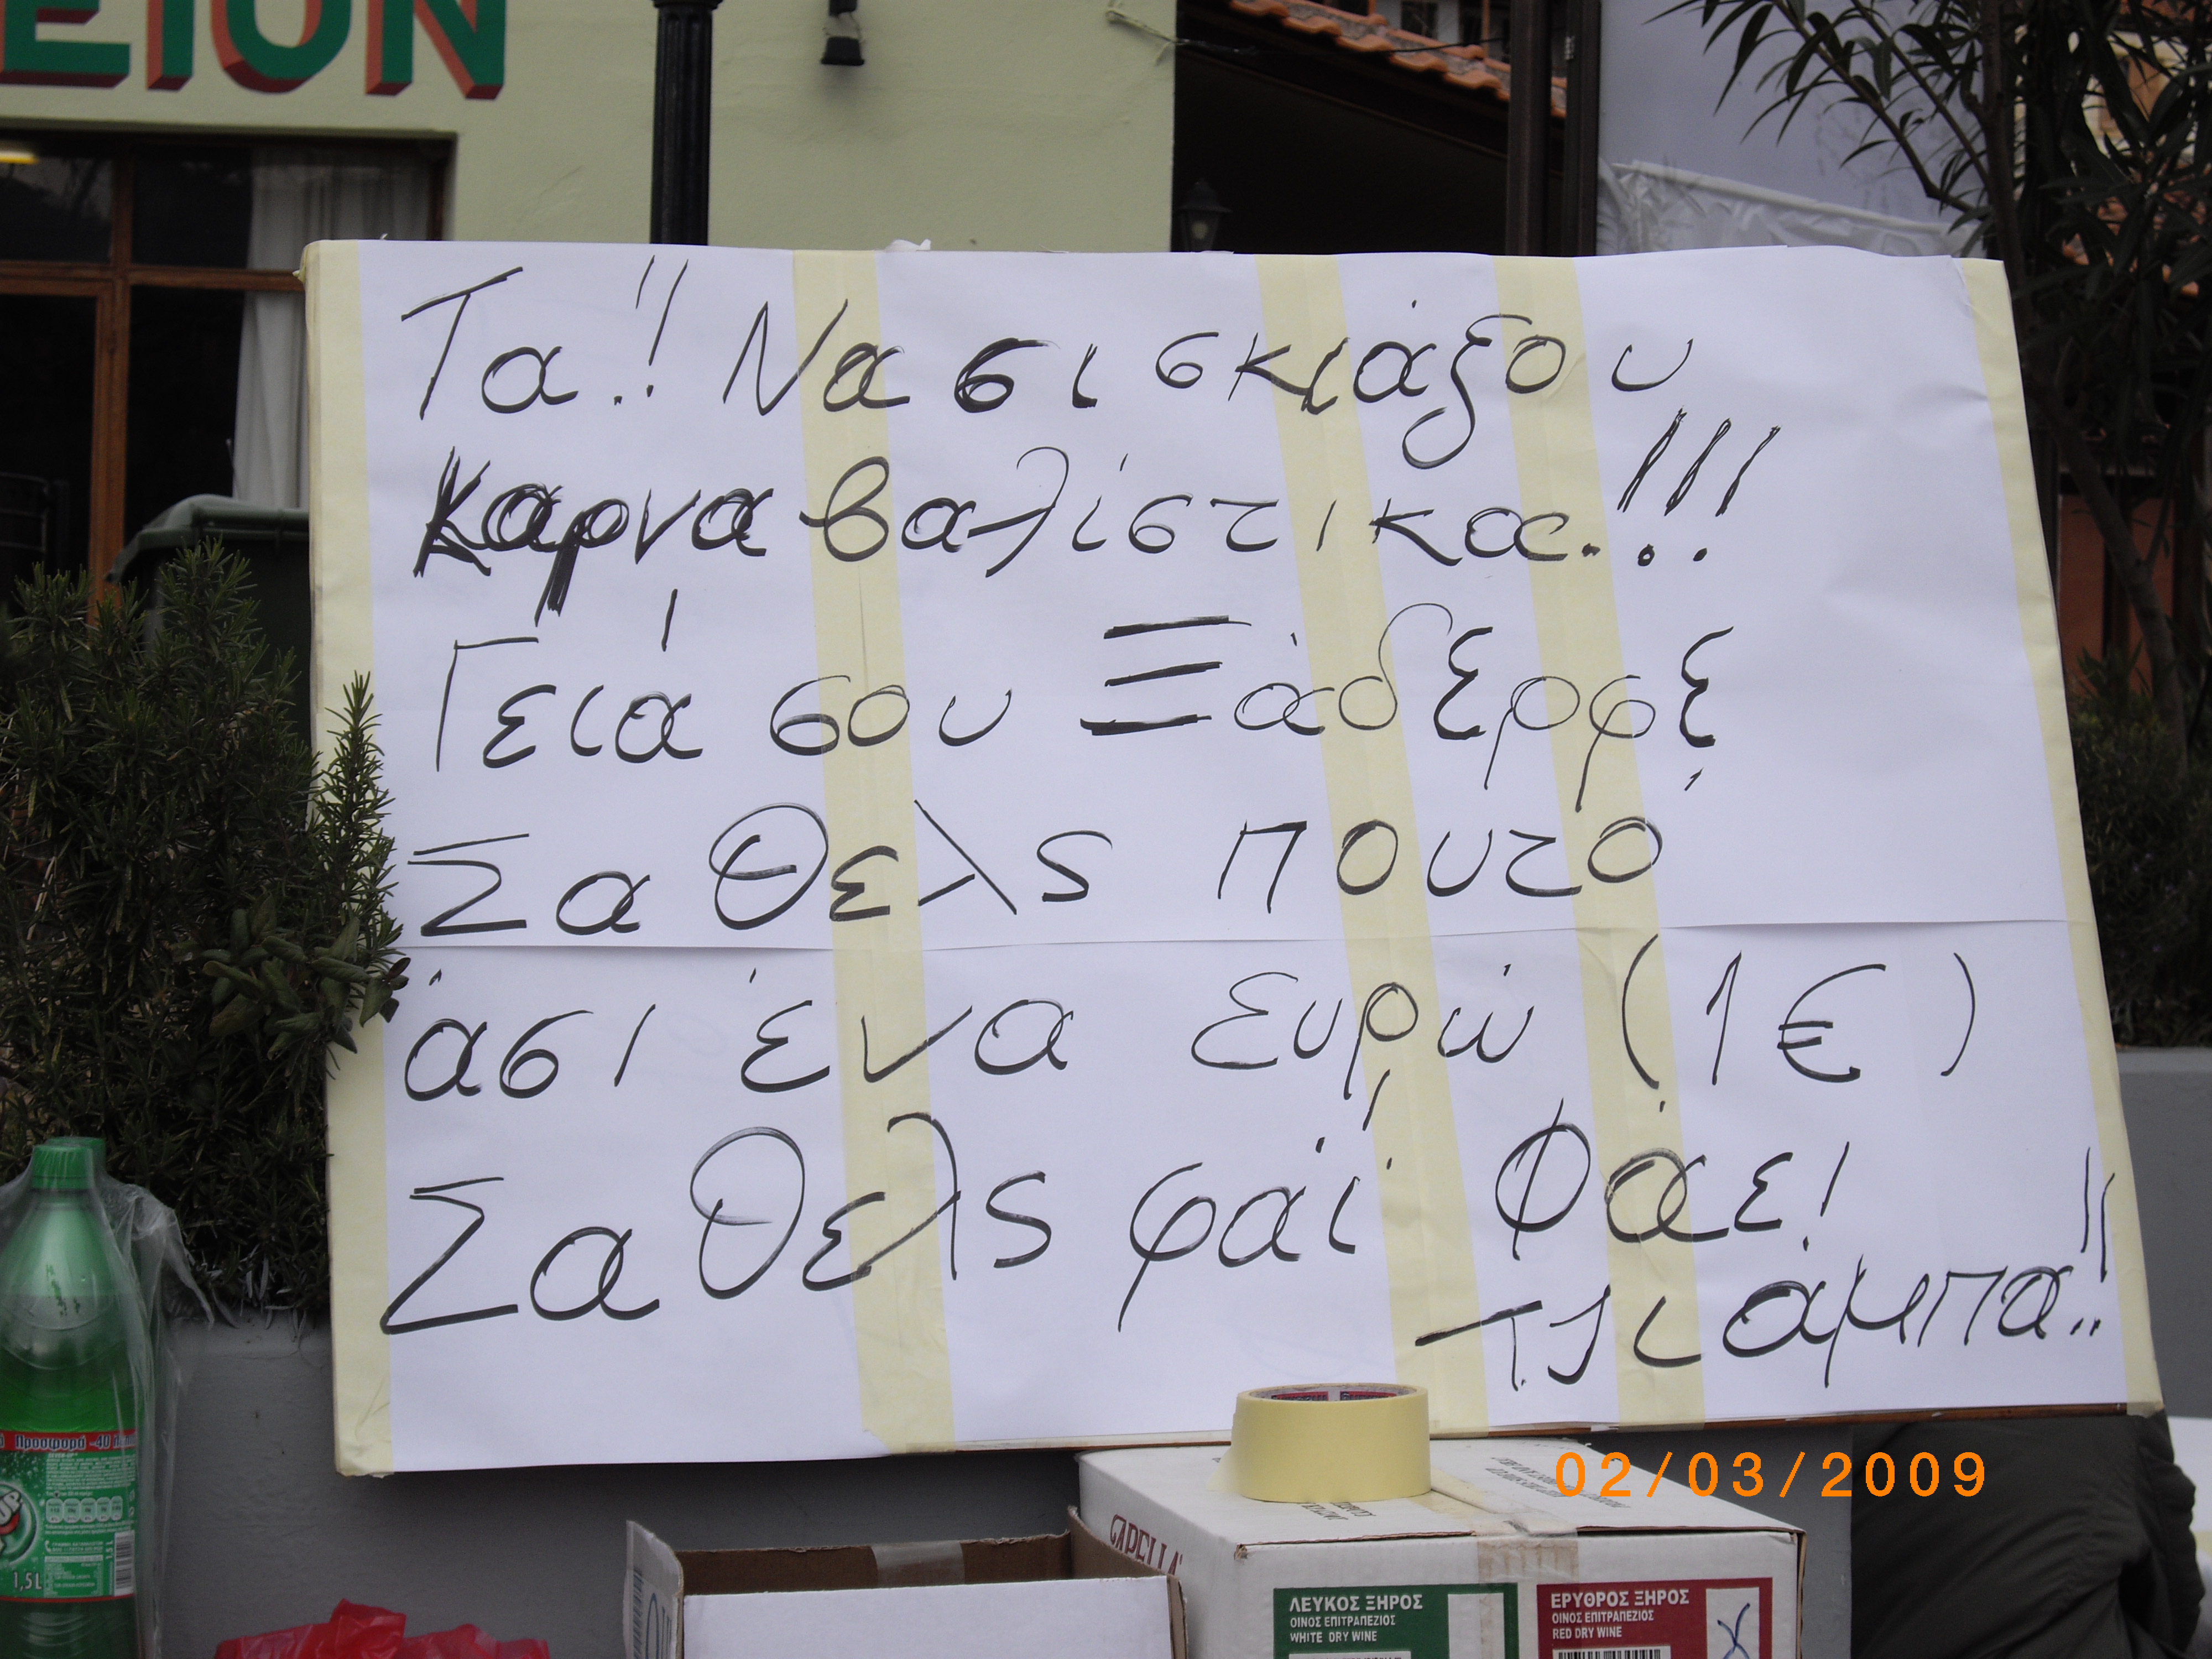 ΕΙΟΝ
Τα.!! Να σι σκιάξου
Καρναβαλίστικα.!!!
Γειά σου Ξάδερφε
Σα θελς πουτο
άσι ένα ευρώ (1€)
Σα θελς φάϊ Φάε!
τςιάμπα..!!
Προσφορά -40
UP
1,5L
CAPELLA
ΛΕΥΚΟΣ ΞΗΡΟΣ
ΟΙΝΟΣ ΕΠΙΤΡΑΠΕΖΙΟΣ
WHITE DRY WINE
ΕΡΥΘΡΟΣ ΞΗΡΟΣ
ΟΙΝΟΣ ΕΠΙΤΡΑΠΕΖΙΟΣ
RED DRY WINE
02/03/2009